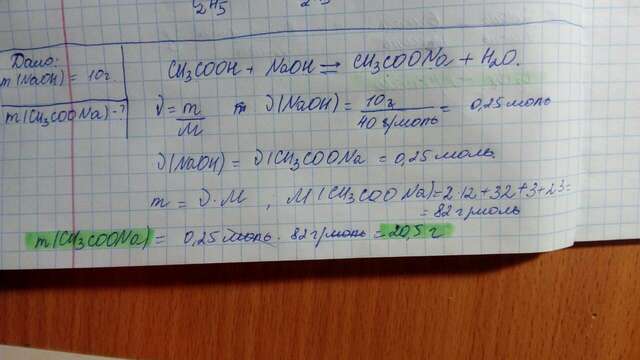 Дано:
m(NaOH) = 10г.
m(CH₃COONa) - ?
CH₃COOH + NaOH ⇌ CH₃COONa + H₂O.
ν = m/M ν(NaOH) = 10г/40г/моль = 0,25 моль
ν(NaOH) = ν(CH₃COONa = 0,25 моль.
m = ν · M , M(CH₃COONa) = 2·12 + 32 + 3 + 23 =
= 82 г/моль
m(CH₃COONa) = 0,25 моль · 82 г/моль = 20,5 г